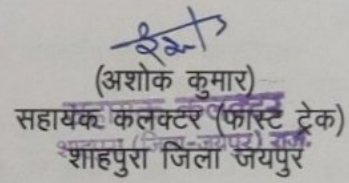 (अशोक कुमार)
सहायक कलक्टर (फास्ट ट्रेक)
शाहपुरा जिला जयपुर